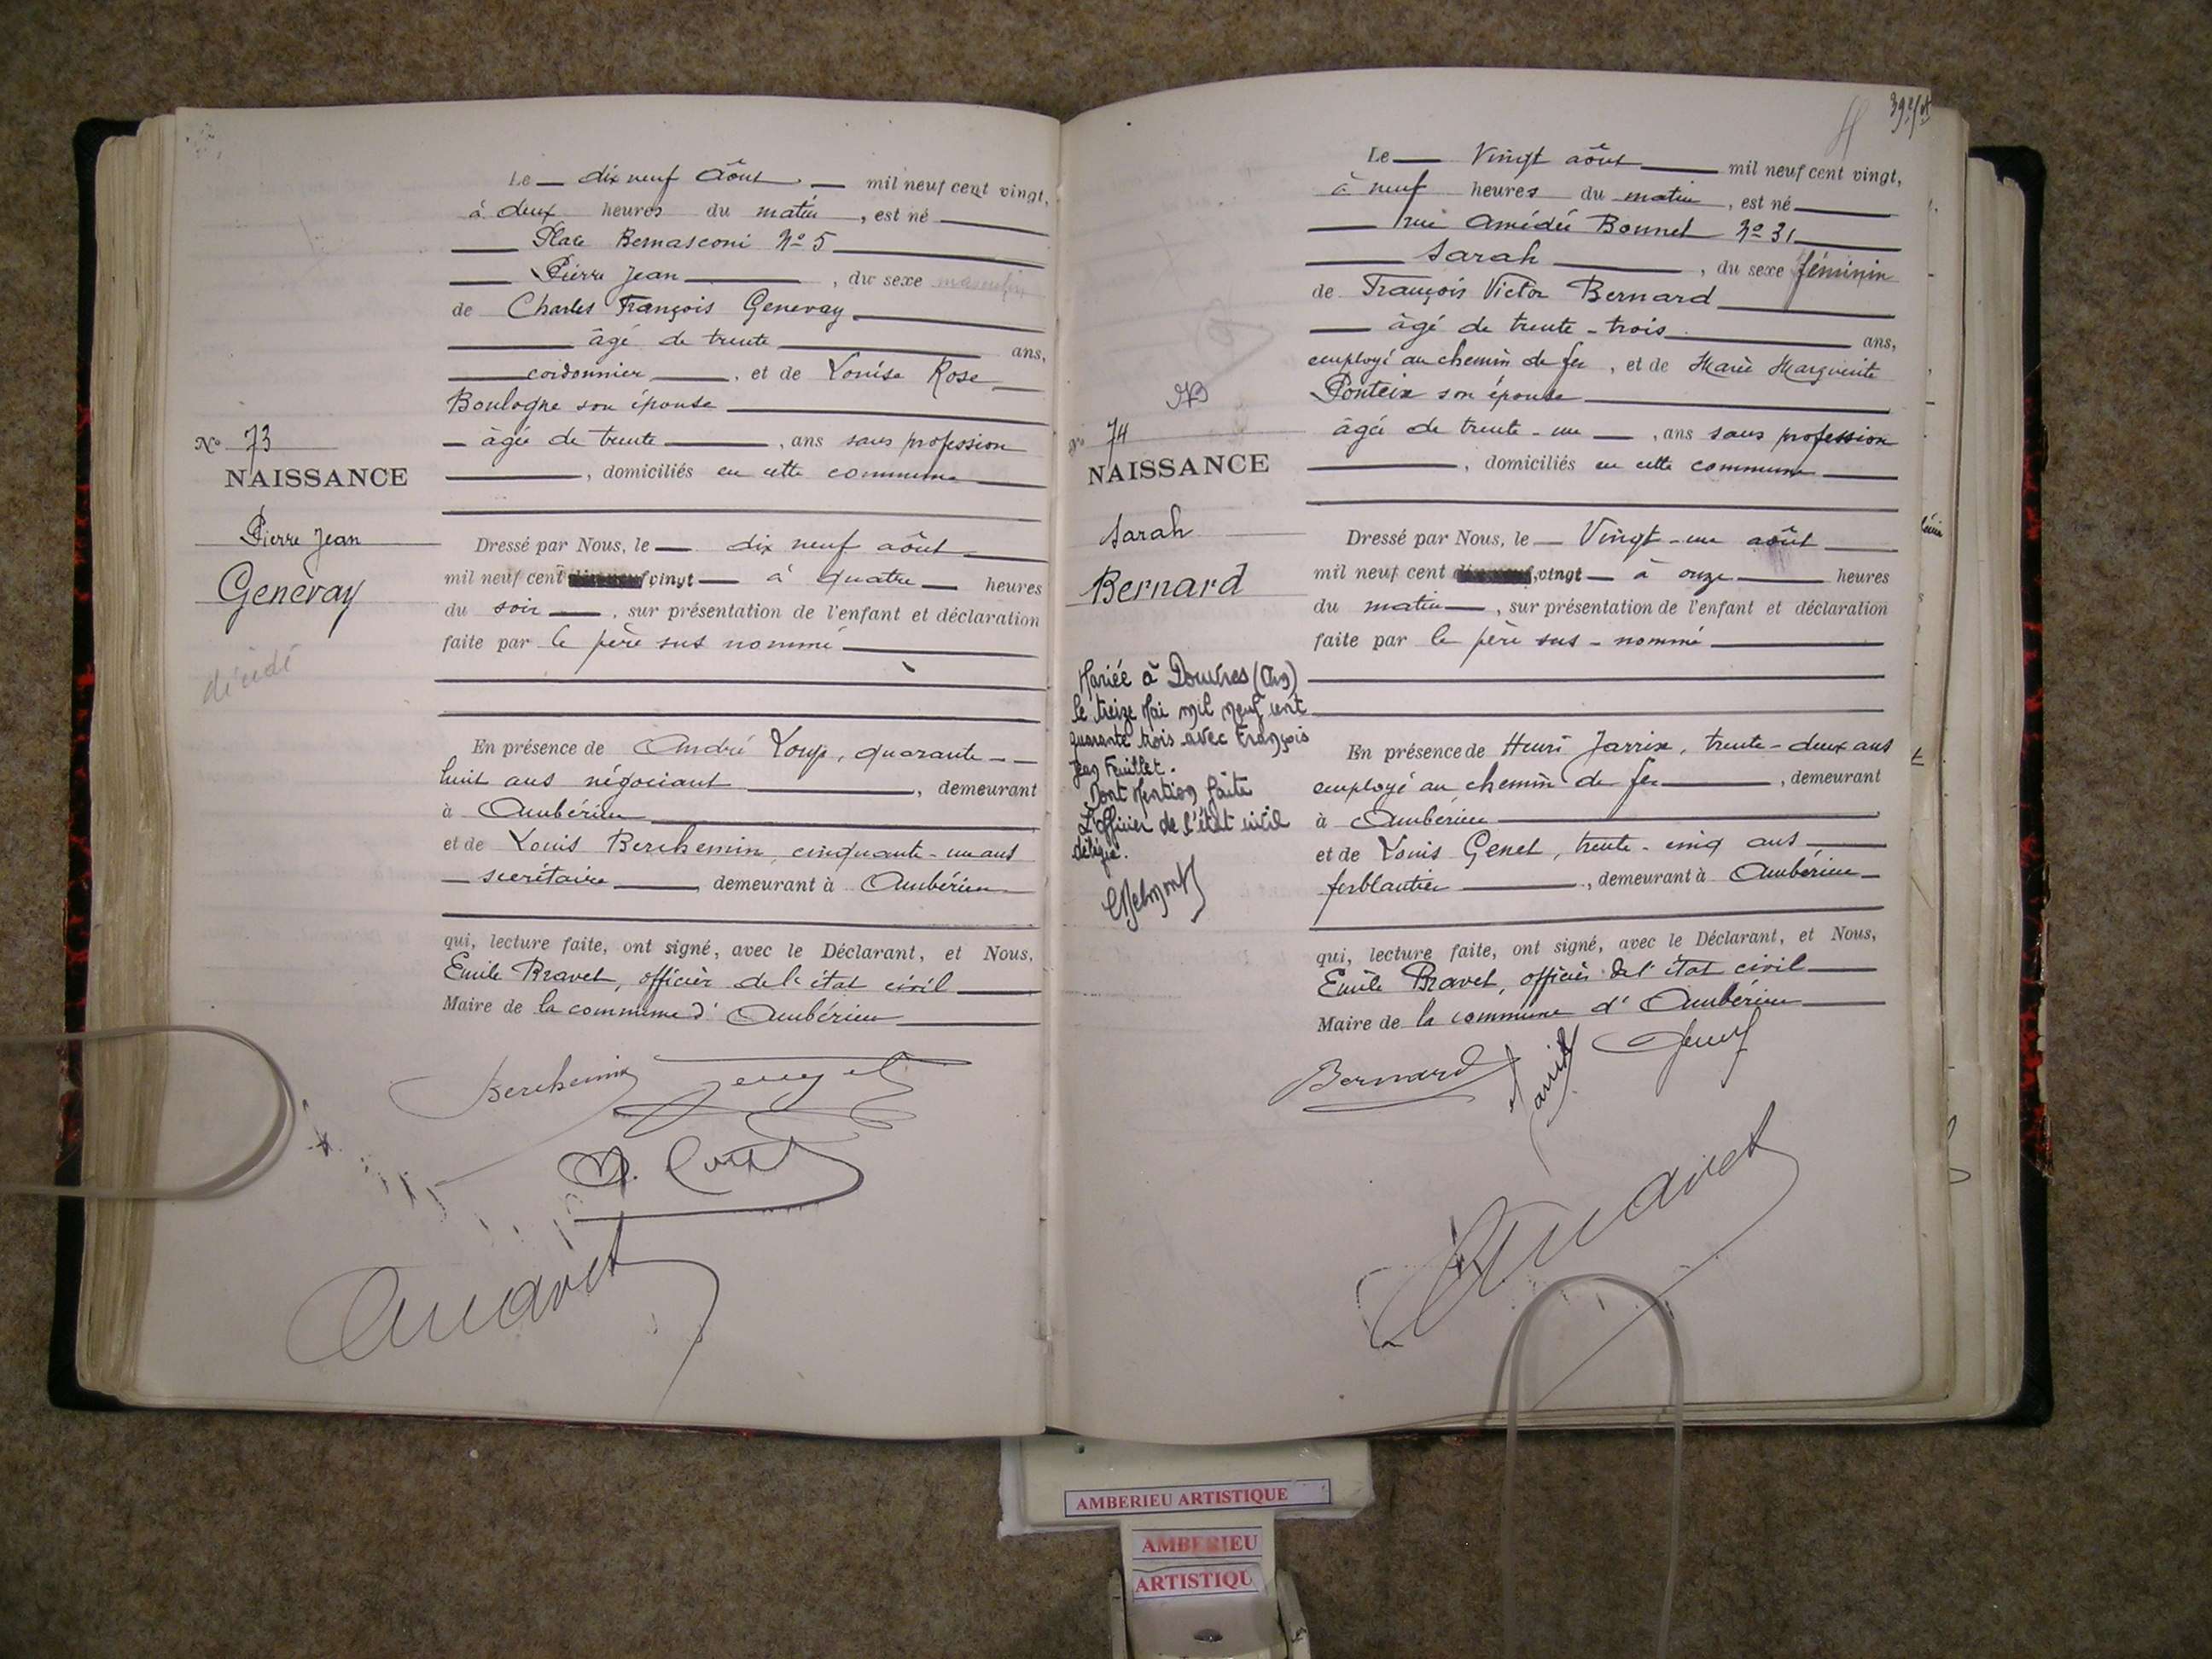 Le dix neuf Août mil neuf cent vingt,
à deux heures du matin, est né
Place Bernasconi No 5
Pierre Jean, du sexe masculin
de Charles François Genevay
âgé de trente ans,
cordonnier, et de Louise Rose
Boulogne son épouse
No 73
âgée de trente, ans sans profession
NAISSANCE
, domiciliés en cette commune
Pierre Jean
Genevay
décédé
Dressé par Nous, le dix neuf août
mil neuf cent vingt à quatre heures
du soir, sur présentation de l'enfant et déclaration
faite par le père sus nommé
En présence de André Loup, quarante-
huit ans négociant, demeurant
à Ambérieu
et de Louis Berchemin, cinquante-un ans
secrétaire, demeurant à Ambérieu
qui, lecture faite, ont signé, avec le Déclarant, et Nous,
Emile Bravet, officier de l'état civil
Maire de la commune d'Ambérieu
Berchemin
Le Vingt août mil neuf cent vingt,
à neuf heures du matin, est né
rue Amédée Bonnet No 31
Sarah, du sexe féminin
de François Victor Bernard
âgé de trente-trois ans,
employé au chemin de fer, et de Marie Marguerite
Ponteix son épouse
No 74
âgée de trente-un, ans sans profession
NAISSANCE
, domiciliés en cette commune
Sarah
Bernard
Mariée à Douvres (Ain)
le treize Mai mil neuf cent
quarante trois avec François
Jean Feuillet.
Dont Mention faite
L'officier de l'état civil
délégué.
Dressé par Nous, le Vingt-un août
mil neuf cent vingt à onze heures
du matin, sur présentation de l'enfant et déclaration
faite par le père sus-nommé
En présence de Henri Jarrix, trente-deux ans
employé au chemin de fer, demeurant
à Ambérieu
et de Louis Genet, trente-cinq ans
ferblantier, demeurant à Ambérieu
qui, lecture faite, ont signé, avec le Déclarant, et Nous,
Emile Bravet, officier de l'état civil
Maire de la commune d'Ambérieu
Bernard
AMBERIEU ARTISTIQUE
AMBERIEU
ARTISTIQU